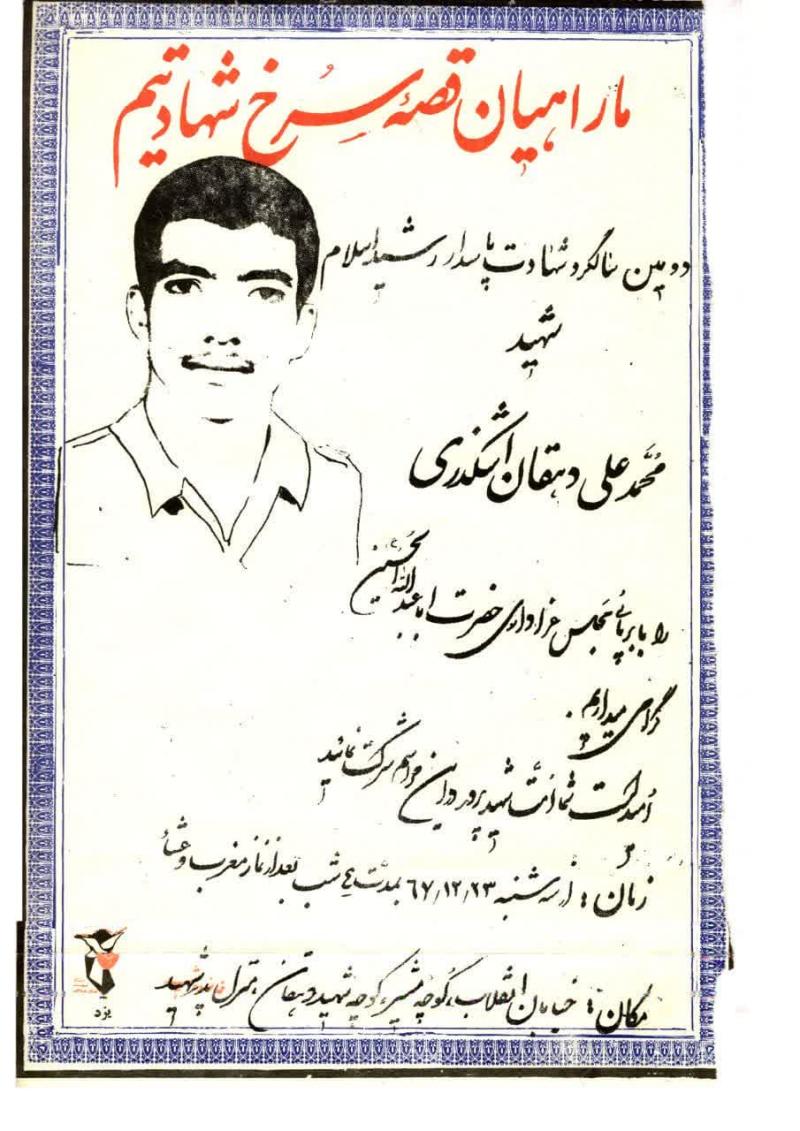 ما راهیان قصهٔ سرخ شهادتیم
دومین سالگرد شهادت پاسدار رشید اسلام
شهید
محمد علی دهقان اشکذری
را با برپائی مجلس عزاداری حضرت اباعبدالله الحسین
گرامی میداریم.
امید است شما امت شهید پرور در این مراسم شرکت نمائید
زمان: از سه شنبه ۶۷/۱۲/۲۳ بمدت ٤ شب بعد از نماز مغرب و عشاء
مکان: خیابان انقلاب، کوچه مشیر، کوچه شهید دهقان، منزل پدر شهید
یزد